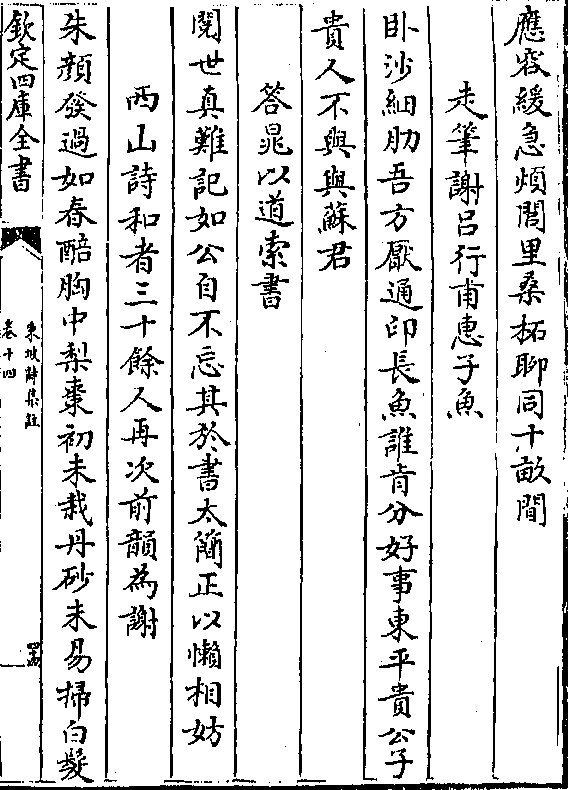 應容緩急煩閭里桑柘聊同十畝間
走筆謝呂行甫惠子魚
卧沙細肋吾方厭通印長魚誰肯分好事東平貴公子
貴人不與與蘇君
答晁以道索書
閱世真難記如公自不忘其於書太簡正以懶相妨
西山詩和者三十餘人再次前韻為謝
朱顔發過如春醅胸中梨棗初未栽丹砂未易掃白髮
欽定四庫全書
東坡詩集註
卷十四
四